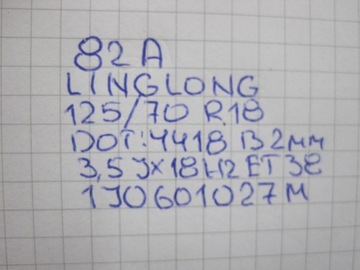 82A
LINGLONG
125/70 R.18
DOT:4418 B2мм
3,5 J×18 H2 ET 38
1J0601027M